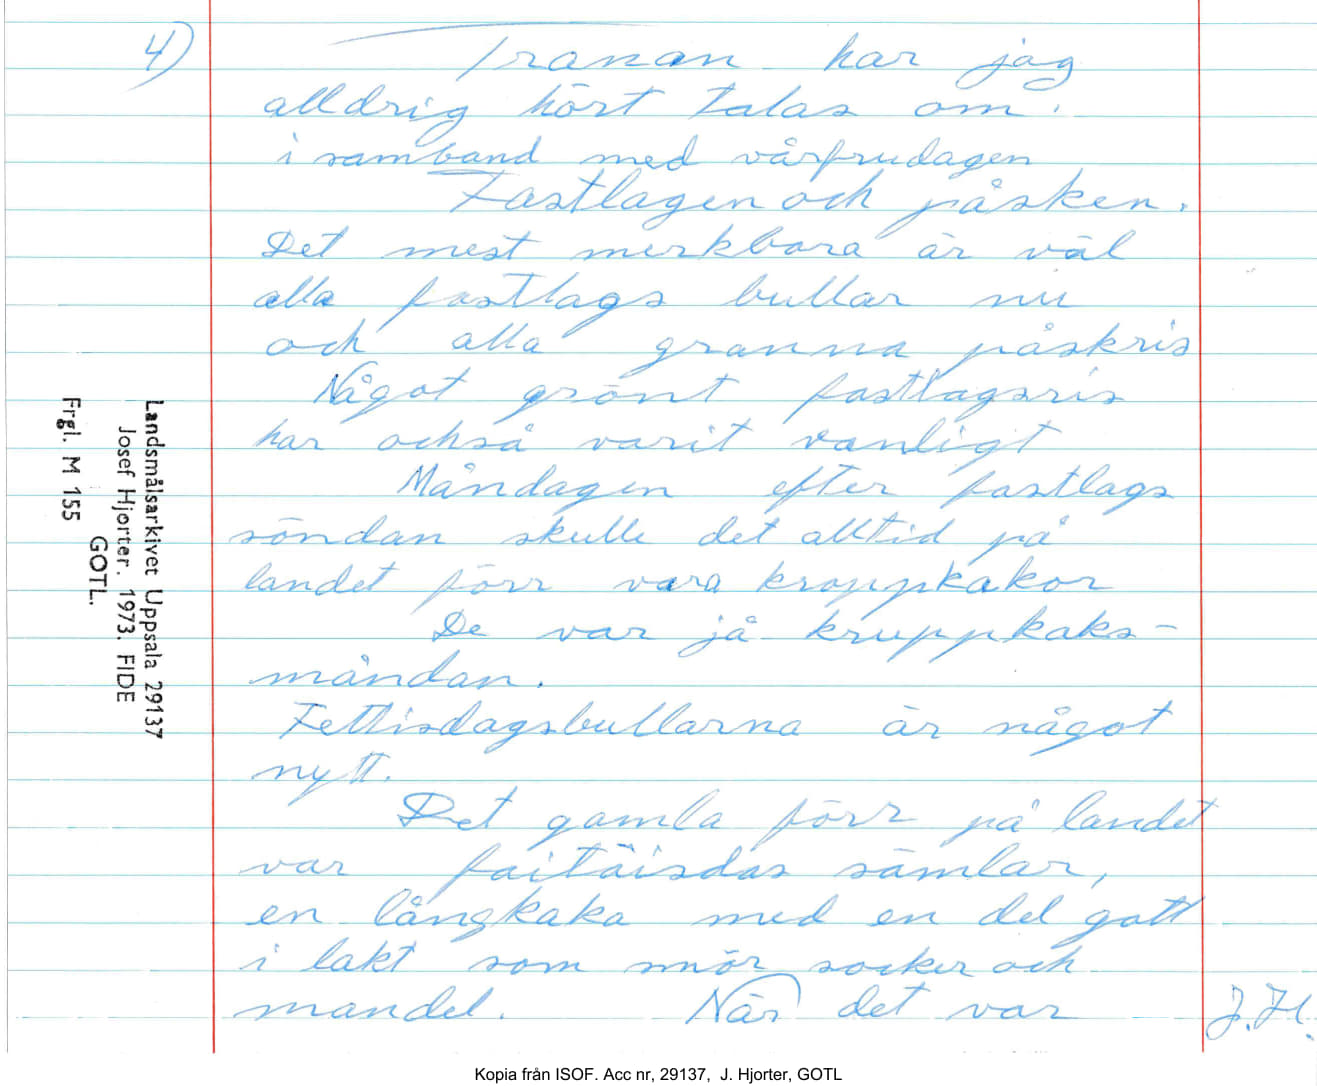 4)
Tranan har jag
alldrig hört talas om.
i samband med vårfrudagen
Fastlagen och påsken.
Det mest merkbara är väl
alla fastlags bullar nu
och alla granna påskris
Något grönt fastlagsris
har också varit vanligt
Måndagen efter fastlags
söndan skulle det alltid på
landet förr vara kroppkakor
De var jå kruppkaks-
måndan.
Fettisdagsbullarna är något
nytt.
Det gamla förr på landet
var faitäisdas sämlar,
en långkaka med en del gott
i lakt som smör socker och
mandel. När det var
J.H.
Landsmålsarkivet Uppsala 29137
Josef Hjorter. 1973. FIDE
GOTL.
Frgl. M 155
Kopia från ISOF. Acc nr, 29137, J. Hjorter, GOTL